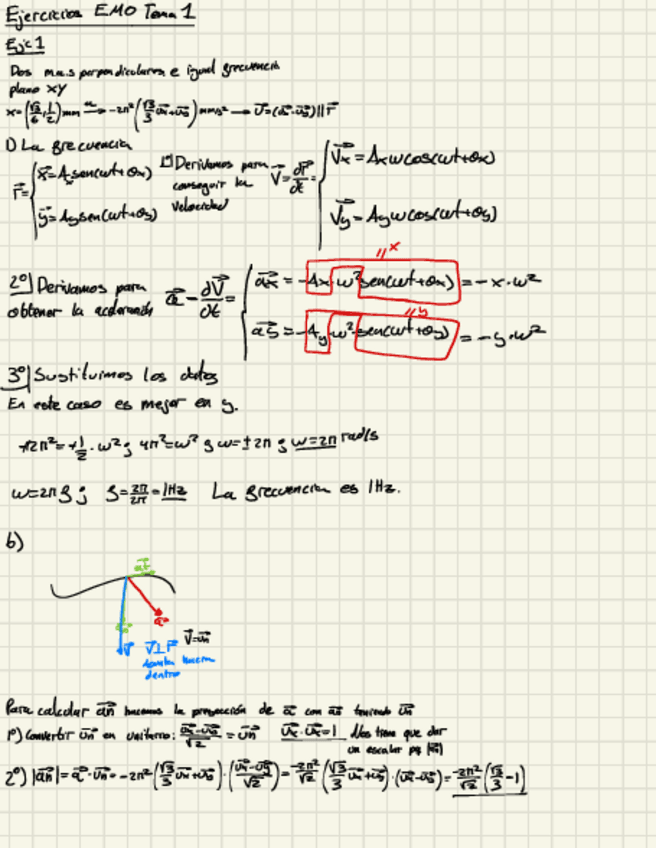 Ejercicios EMO Tema 1
Ejc 1
Dos m.a.s perpendiculares e igual frecuencia
plano XY
x=(√3/6, 1/2)mm → -2π²(√3/3 ux+uy) mm/s² → v=(ux-uy)||r
1) La frecuencia
r= { x=Ax sen(ωt+θx)
y=Ay sen(ωt+θy)
1º Derivamos para conseguir la velocidad
v=dr/dt= { Vx=Axωcos(ωt+θx)
Vy=Ayωcos(ωt+θy)
2º Derivamos para obtener la aceleración
a=dV/dt= { ax=-Ax·ω² sen(ωt+θx)=-x·ω²
"x
ay=-Ay·ω² sen(ωt+θy)=-y·ω²
"y
3º Sustituimos los datos
En este caso es mejor en y.
+2π²=+1/2·ω²; 4π²=ω²; ω=±2π; ω=2π rad/s
ω=2πf; f=2π/2π=1Hz La frecuencia es 1Hz.
b)
at
a
v
V⊥r
V=un
hacia
dentro
Para calcular an hacemos la proyección de a con an teniendo un
1º) Convertir un en unitario: ux-uy/√2=un ux·ux=1 Nos tiene que dar
un escalar pq |an|
2º) |an|=a·un=-2π²(√3/3 ux+uy)·(ux-uy/√2)=-2π²/√2(√3/3 ux+uy)·(ux-uy)=-2π²/√2(√3/3-1)